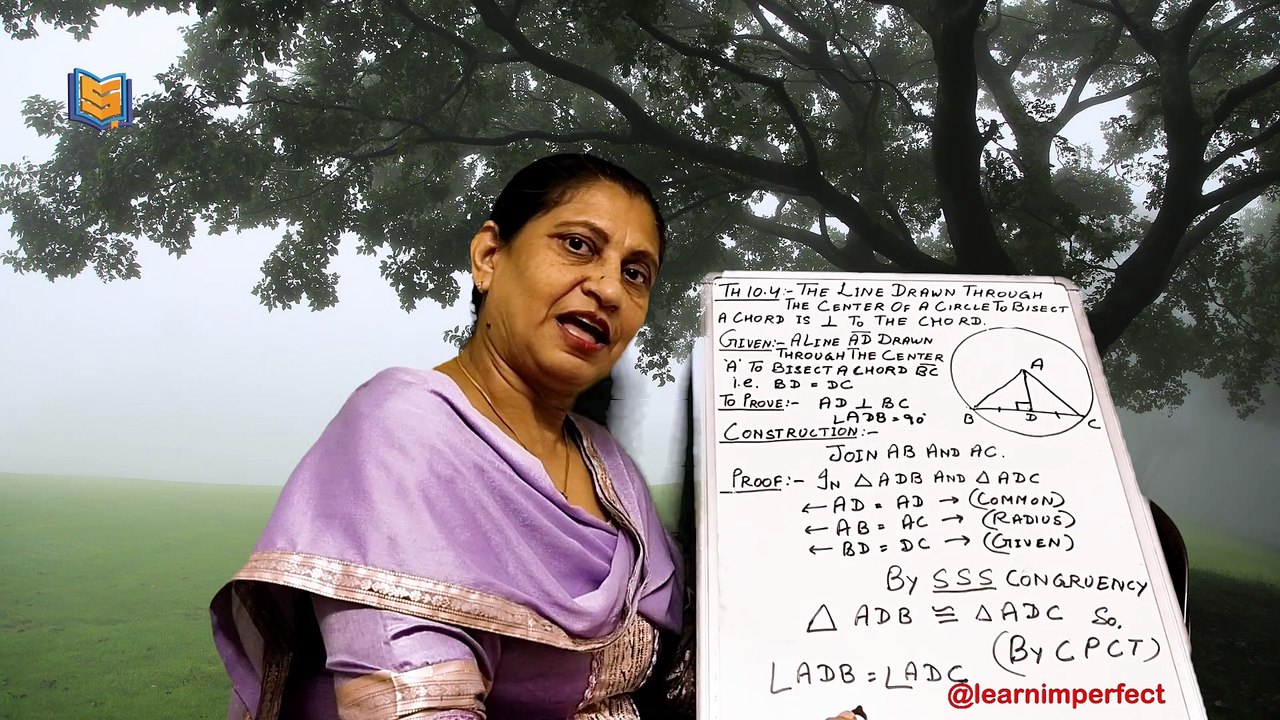 TH 10.4:- THE LINE DRAWN THROUGH
THE CENTER OF A CIRCLE TO BISECT
A CHORD IS ⊥ TO THE CHORD.
GIVEN:- A LINE A̅D̅ DRAWN
THROUGH THE CENTER
'A' TO BISECT A CHORD B̅C̅
i.e. BD = DC
TO PROVE:- AD ⊥ BC
∠ADB = 90°
CONSTRUCTION:-
JOIN AB AND AC.
PROOF:- IN △ ADB AND △ ADC
← AD = AD → (COMMON)
← AB = AC → (RADIUS)
← BD = DC → (GIVEN)
BY SSS CONGRUENCY
△ ADB ≅ △ ADC SO,
(BY CPCT)
∠ADB = ∠ADC
A
B D C
S
@learnimperfect